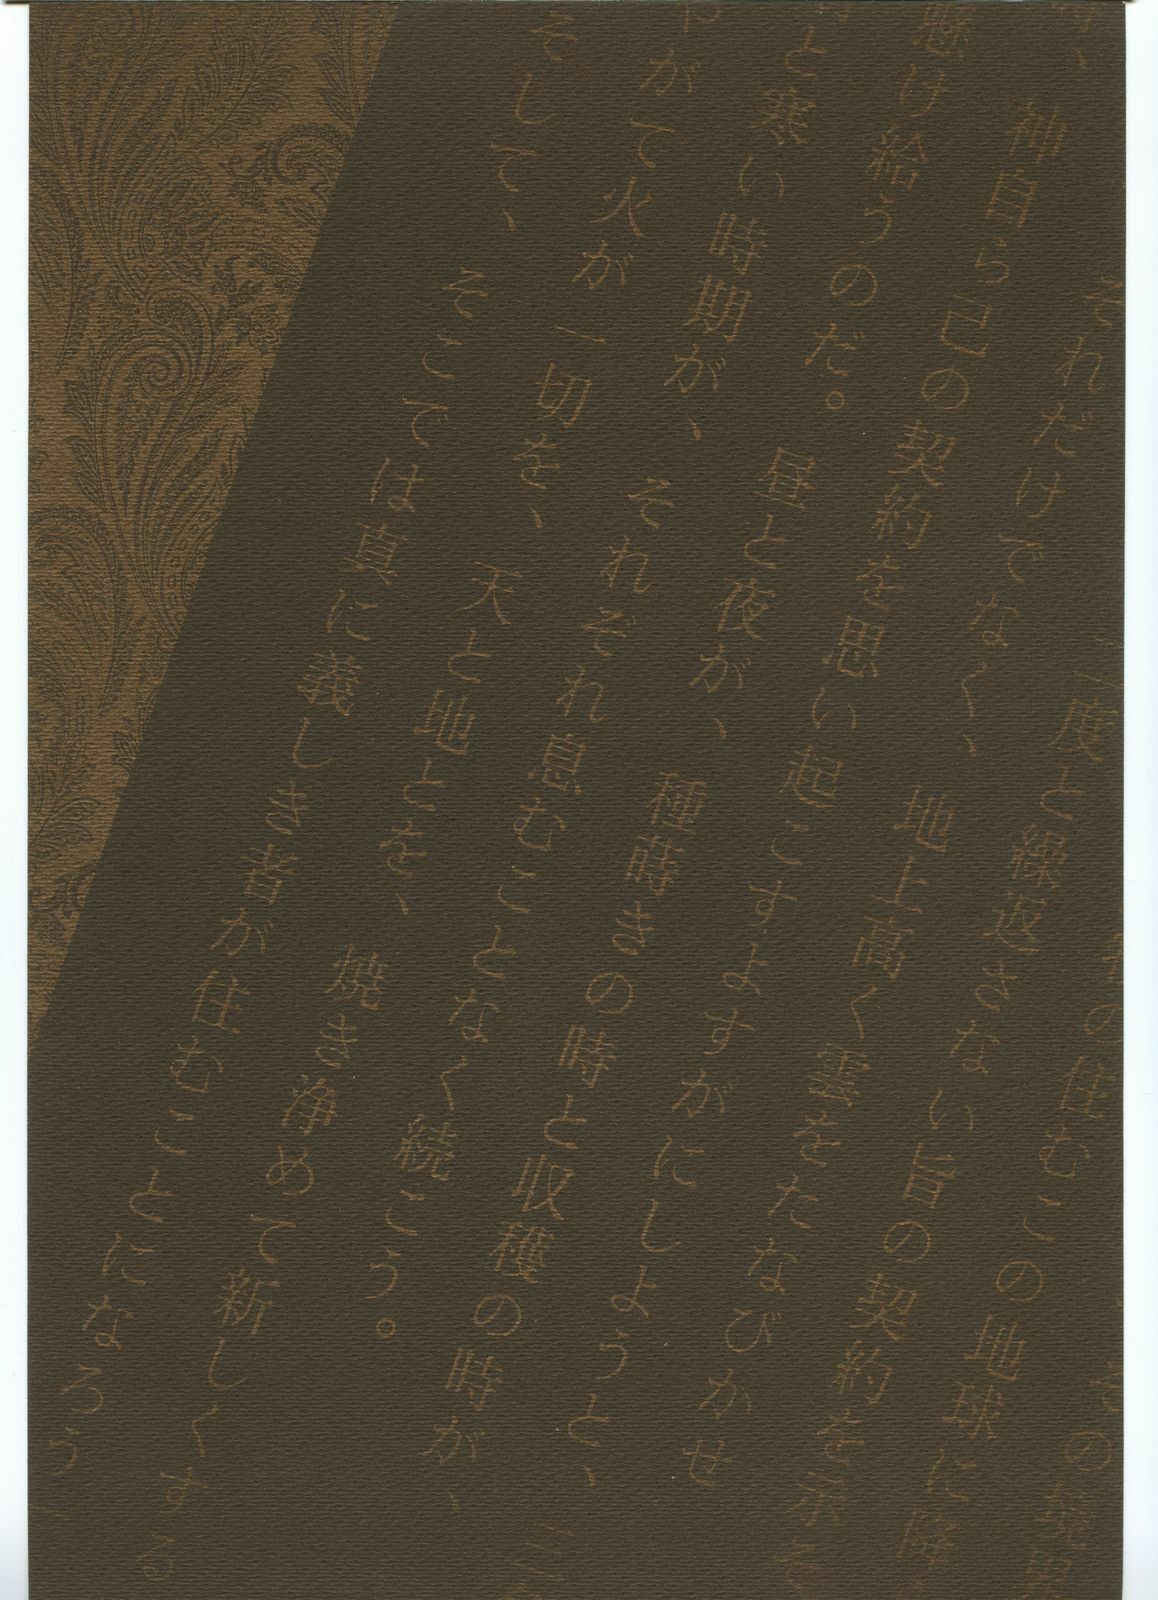 その境
の住むこの地球に降
度と繰返さない旨の契約を示そ
それだけでなく、地上高く雲をたなびかせ
、神自ら己の契約を思い起こすよすがにしようと、三
懸け給うのだ。昼と夜が、種蒔きの時と収穫の時が、
と寒い時期が、それぞれ息むことなく続こう。
やがて火が一切を、天と地とを、焼き浄めて新しくする
そして、そこでは真に義しき者が住むことになろう